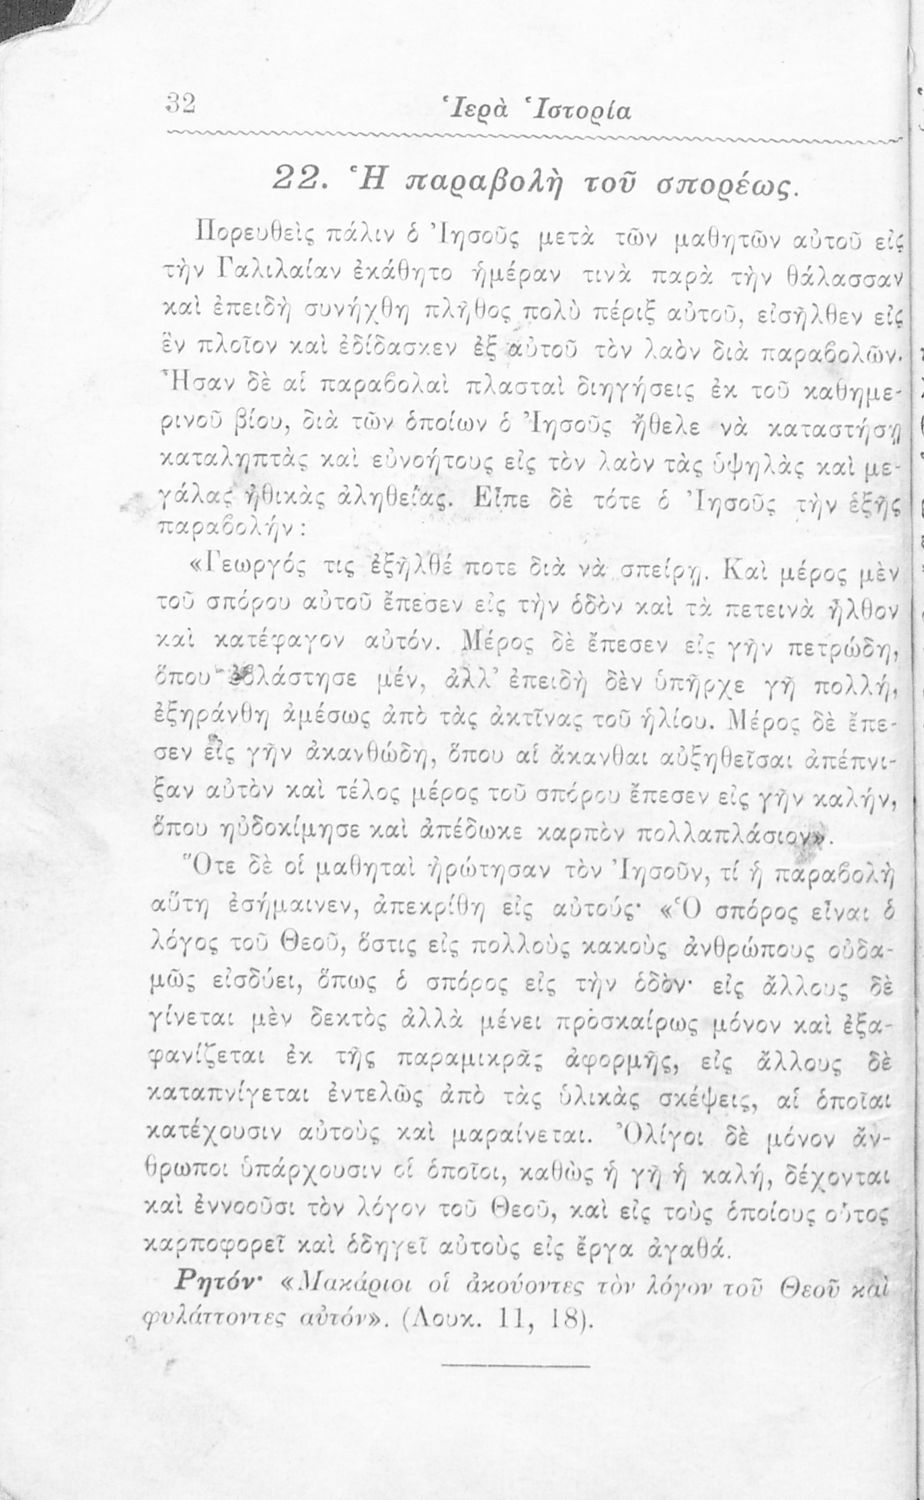 32
Ἱερὰ Ἱστορία
22. Ἡ παραβολὴ τοῦ σπορέως.
Πορευθεὶς πάλιν ὁ Ἰησοῦς μετὰ τῶν μαθητῶν αὐτοῦ εἰς
τὴν Γαλιλαίαν ἐκάθητο ἡμέραν τινὰ παρὰ τὴν θάλασσαν
καὶ ἐπειδὴ συνήχθη πλῆθος πολὺ πέριξ αὐτοῦ, εἰσῆλθεν εἰς
ἓν πλοῖον καὶ ἐδίδασκεν ἐξ αὐτοῦ τὸν λαὸν διὰ παραβολῶν.
Ἦσαν δὲ αἱ παραβολαὶ πλασταὶ διηγήσεις ἐκ τοῦ καθημε-
ρινοῦ βίου, διὰ τῶν ὁποίων ὁ Ἰησοῦς ἤθελε νὰ καταστήσῃ
καταληπτὰς καὶ εὐνοήτους εἰς τὸν λαὸν τὰς ὑψηλὰς καὶ με-
γάλας ἠθικὰς ἀληθείας. Εἶπε δὲ τότε ὁ Ἰησοῦς τὴν ἑξῆς
παραβολήν:
«Γεωργός τις ἐξῆλθέ ποτε διὰ νὰ σπείρῃ. Καὶ μέρος μὲν
τοῦ σπόρου αὐτοῦ ἔπεσεν εἰς τὴν ὁδὸν καὶ τὰ πετεινὰ ἦλθον
καὶ κατέφαγον αὐτόν. Μέρος δὲ ἔπεσεν εἰς γῆν πετρώδη,
ὅπου ἐβλάστησε μέν, ἀλλ' ἐπειδὴ δὲν ὑπῆρχε γῆ πολλή,
ἐξηράνθη ἀμέσως ἀπὸ τὰς ἀκτῖνας τοῦ ἡλίου. Μέρος δὲ ἔπε-
σεν εἰς γῆν ἀκανθώδη, ὅπου αἱ ἄκανθαι αὐξηθεῖσαι ἀπέπνι-
ξαν αὐτὸν καὶ τέλος μέρος τοῦ σπόρου ἔπεσεν εἰς γῆν καλήν,
ὅπου ηὐδοκίμησε καὶ ἀπέδωκε καρπὸν πολλαπλάσιον».
Ὅτε δὲ οἱ μαθηταὶ ἠρώτησαν τὸν Ἰησοῦν, τί ἡ παραβολὴ
αὕτη ἐσήμαινεν, ἀπεκρίθη εἰς αὐτούς· «Ὁ σπόρος εἶναι ὁ
λόγος τοῦ Θεοῦ, ὅστις εἰς πολλοὺς κακοὺς ἀνθρώπους οὐδα-
μῶς εἰσδύει, ὅπως ὁ σπόρος εἰς τὴν ὁδὸν· εἰς ἄλλους δὲ
γίνεται μὲν δεκτὸς ἀλλὰ μένει προσκαίρως μόνον καὶ ἐξα-
φανίζεται ἐκ τῆς παραμικρᾶς ἀφορμῆς, εἰς ἄλλους δὲ
καταπνίγεται ἐντελῶς ἀπὸ τὰς ὑλικὰς σκέψεις, αἱ ὁποῖαι
κατέχουσιν αὐτοὺς καὶ μαραίνεται. Ὀλίγοι δὲ μόνον ἄν-
θρωποι ὑπάρχουσιν οἱ ὁποῖοι, καθὼς ἡ γῆ ἡ καλή, δέχονται
καὶ ἐννοοῦσι τὸν λόγον τοῦ Θεοῦ, καὶ εἰς τοὺς ὁποίους οὗτος
καρποφορεῖ καὶ ὁδηγεῖ αὐτοὺς εἰς ἔργα ἀγαθά.
Ρητόν· «Μακάριοι οἱ ἀκούοντες τὸν λόγον τοῦ Θεοῦ καὶ
φυλάττοντες αὐτόν». (Λουκ. 11, 18).